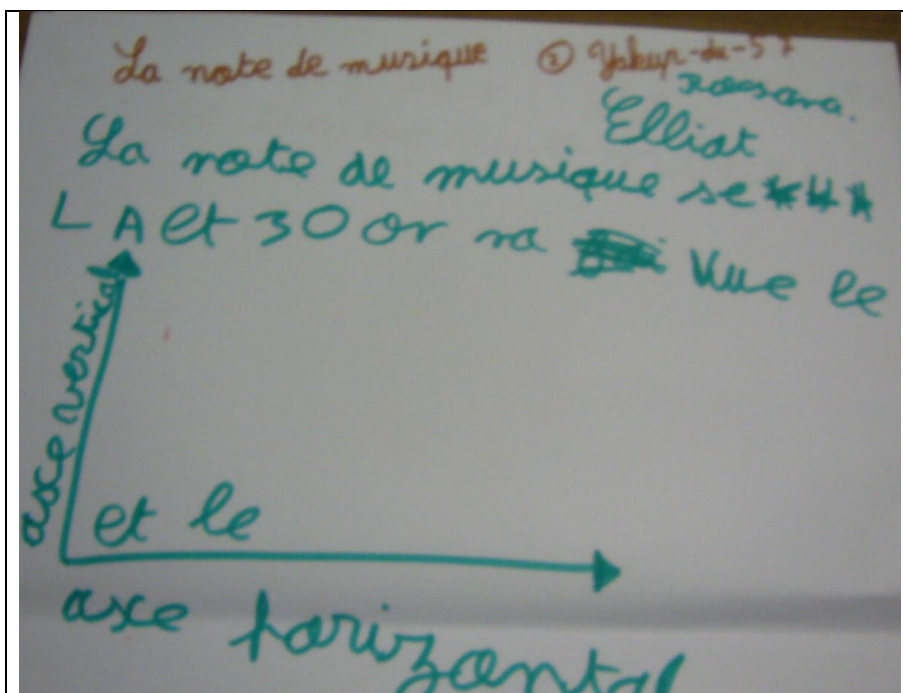 La note de musique ② Yakup-de-57
Roesana.
Elliot
La note de musique se
LA et 30 or na vue le
axe vertical
et le
axe horizontal